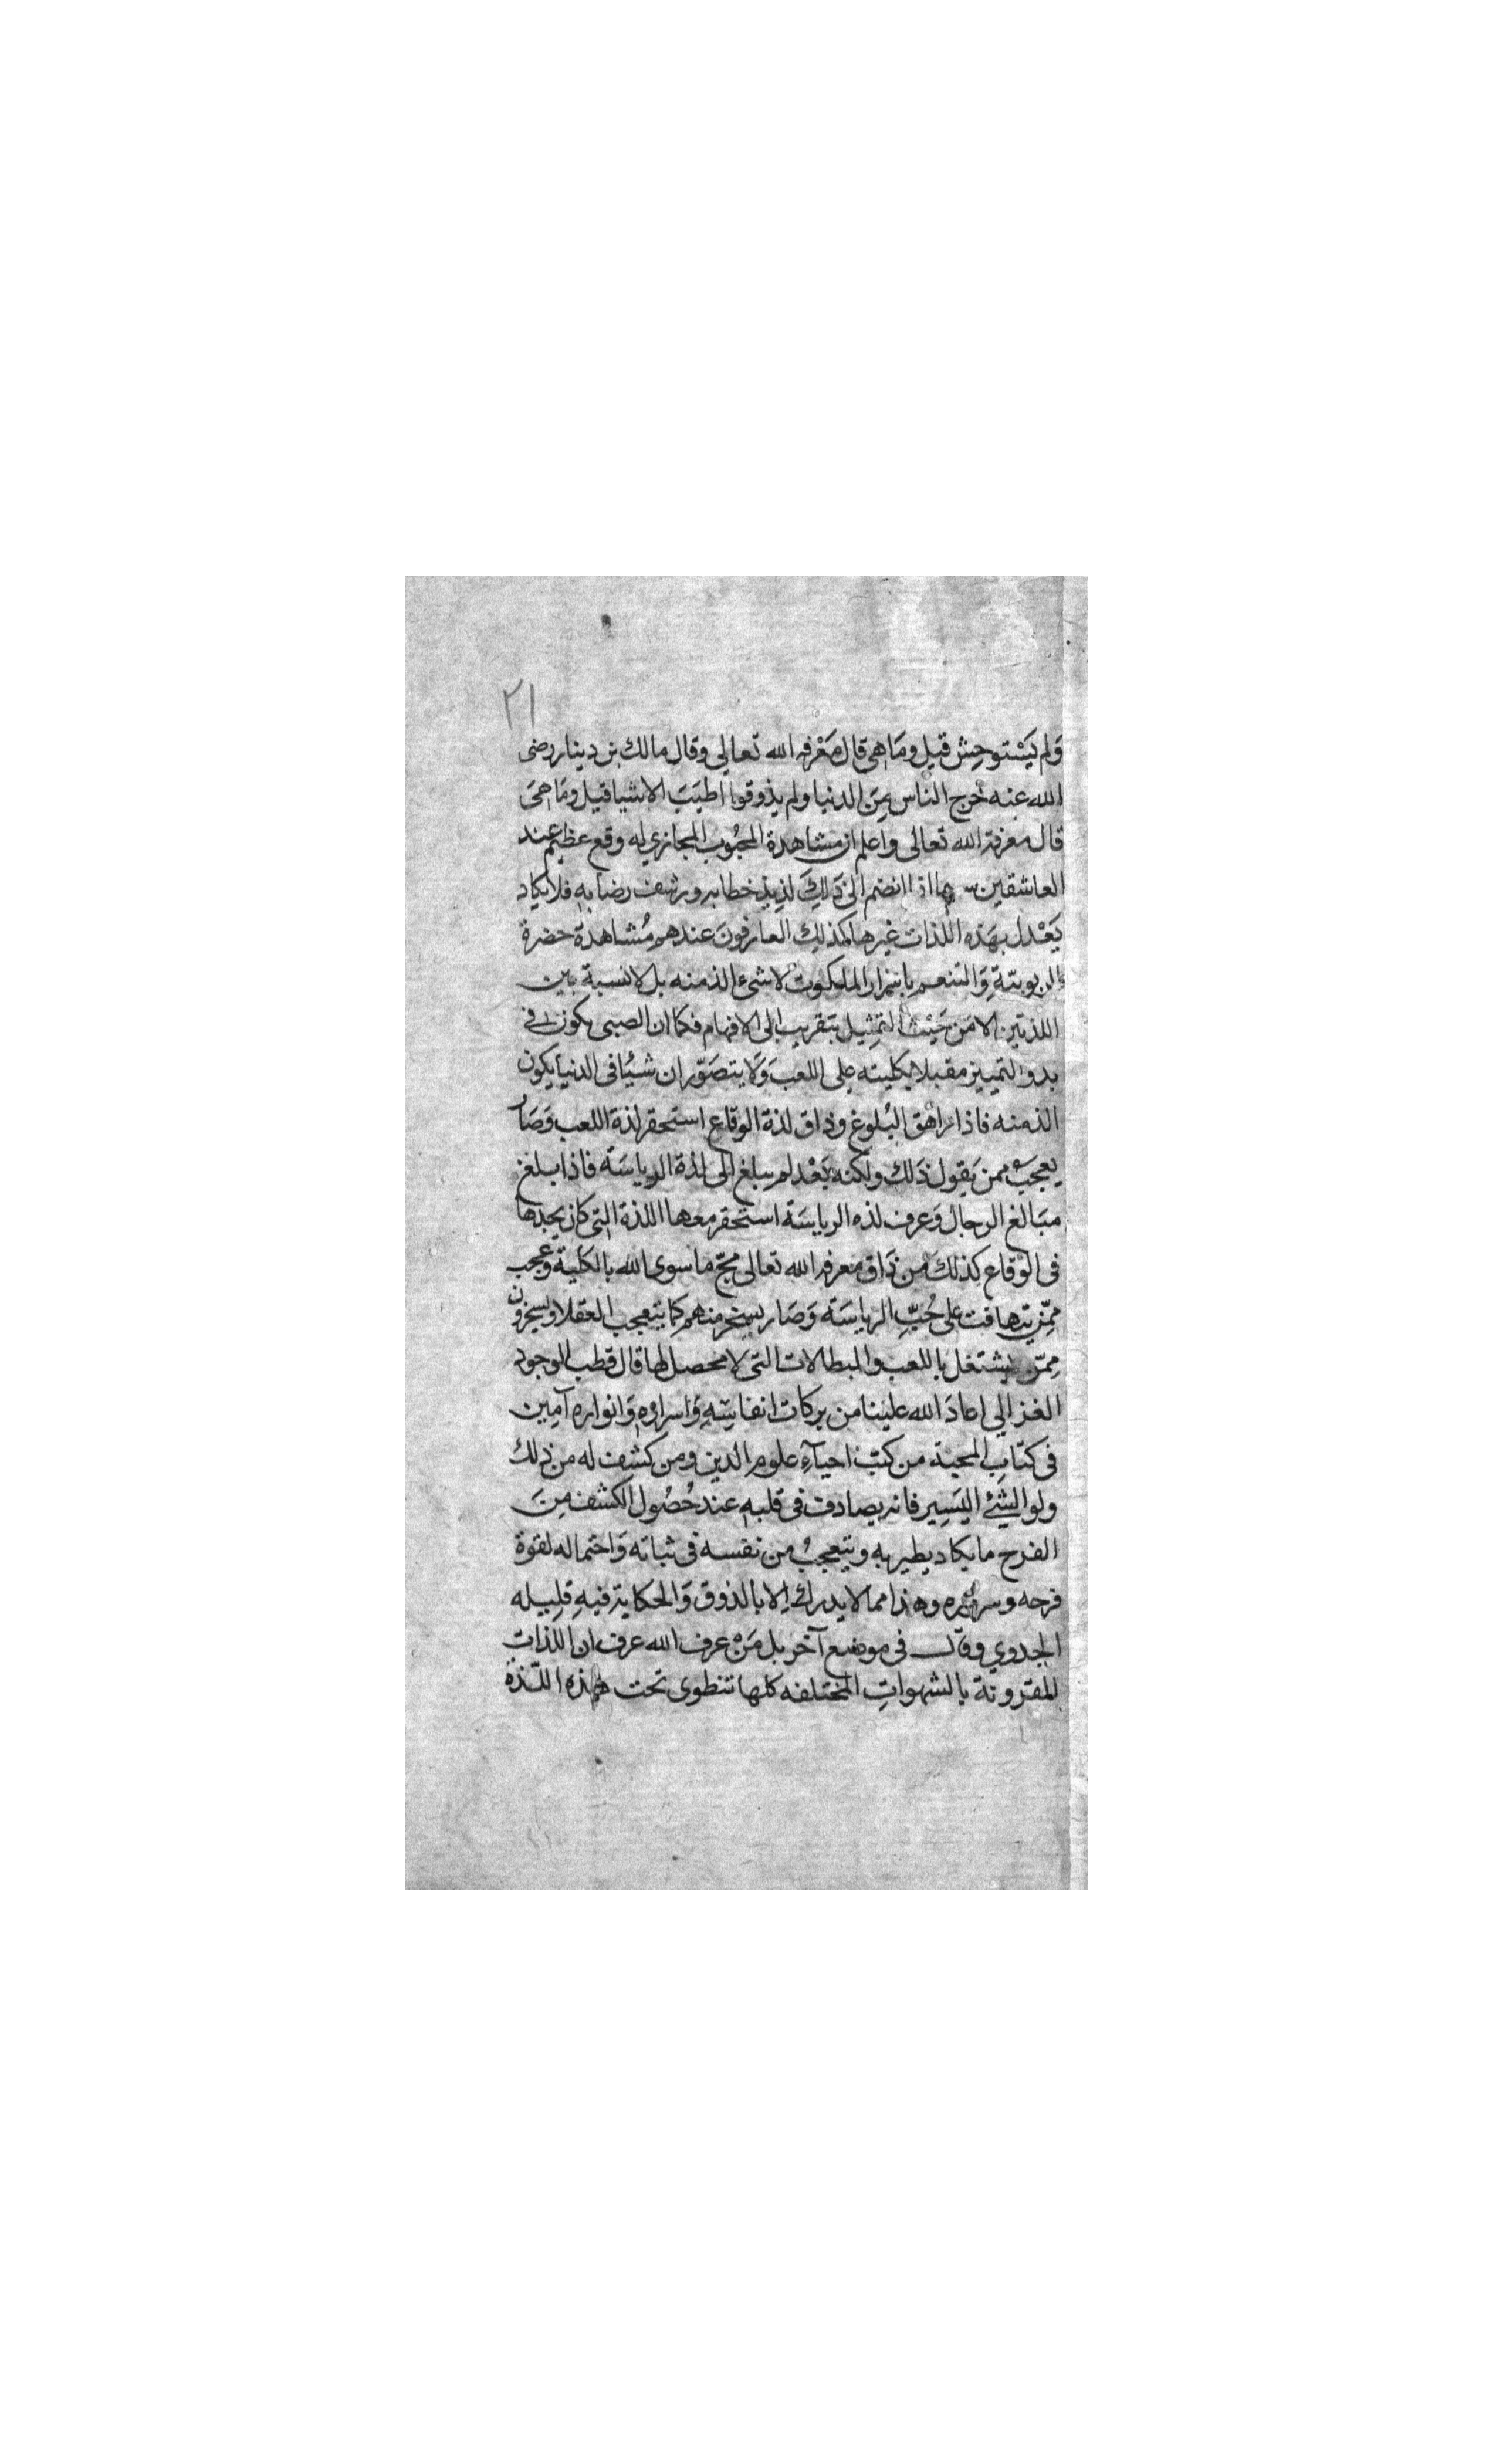 ٢١
وَلم يَسْتوحِش قيل ومَا هي قال مَعْرفه الله تعالي وقال مالك بن دينار رضى
الله عنه خرج الناس مِنَ الدنيا ولم يذوقوا اطيَبَ الاشيا قيل ومَا هىَ
قال معرفة الله تعالى واعلم ان مشاهدة المحبُوب المجازي له وقع عظيم عند
العاشقين سيما اذا انضم الى ذَلِكَ لذِيذ خطابه ورشف رضابه فلا يكاد
يَعْدل بهَذه اللذات غيرها كذلك العارفونَ عندهم مُشاهدة حضرة
الربوبيَّةِ وَالتنعم باسْرار الملكوت لا شىء الذ منه بل لا نسبة بين
اللذتين الا مَن حَيْث التمِثيل بتقريب الى الافهام فكما ان الصبى يكون فى
بدو التمييز مقبلا بكليته على اللعبَ وَلَا يتصَوّر ان شيئا فى الدنيا يكون
الذ منه فاذا راهق البُلوغ وذاق لذة الوقاع استحقر لذة اللعب وَصَار
يعجبُ ممن يَقول ذَلك ولكنه بَعْد لم يبلغ الى لذة الرياسَة فاذا بلغ
مبَالغ الرجال وَعرف لذه الرياسَة استحقر معها اللذة التى كان يجدها
فى الوْقاع كذلكَ من ذَاق معرفه الله تعالى مجّ ما سوى الله بالكلية وعجب
ممّن يتهافت على حُبِّ الرياسَة وَصَار يسخر منهم كما يتعجب العقلا ويسخرون
مِمّن يشتغل باللعب والبطالات التى لا محصل لها قال قطب الوجود
الغزالي اعادَ الله علينا من بركات انفاسِهِ وَاسراره وَانواره آمِين
فى كتابِ المحبة من كتب احيآءِ علوم الدين ومن كشف له من ذلك
ولو الشئ اليَسِير فانه يصادف فى قلبهِ عند حُصُول الكشف مِنَ
الفرح ما يكاد يطير بهِ ويتعجبُ من نفسه فى ثباته وَاحتماله لقوة
فرحه وسروره وهذا مما لا يدرك الا بالذوق وَالحكاية فيهِ قلِيله
الجدوي وقال فى موضع آخر بل مَنْ عرف الله عرف ان اللذاتِ
المقرونة بالشهواتِ المختلفه كلها تنطوى تحت هذه اللّذة